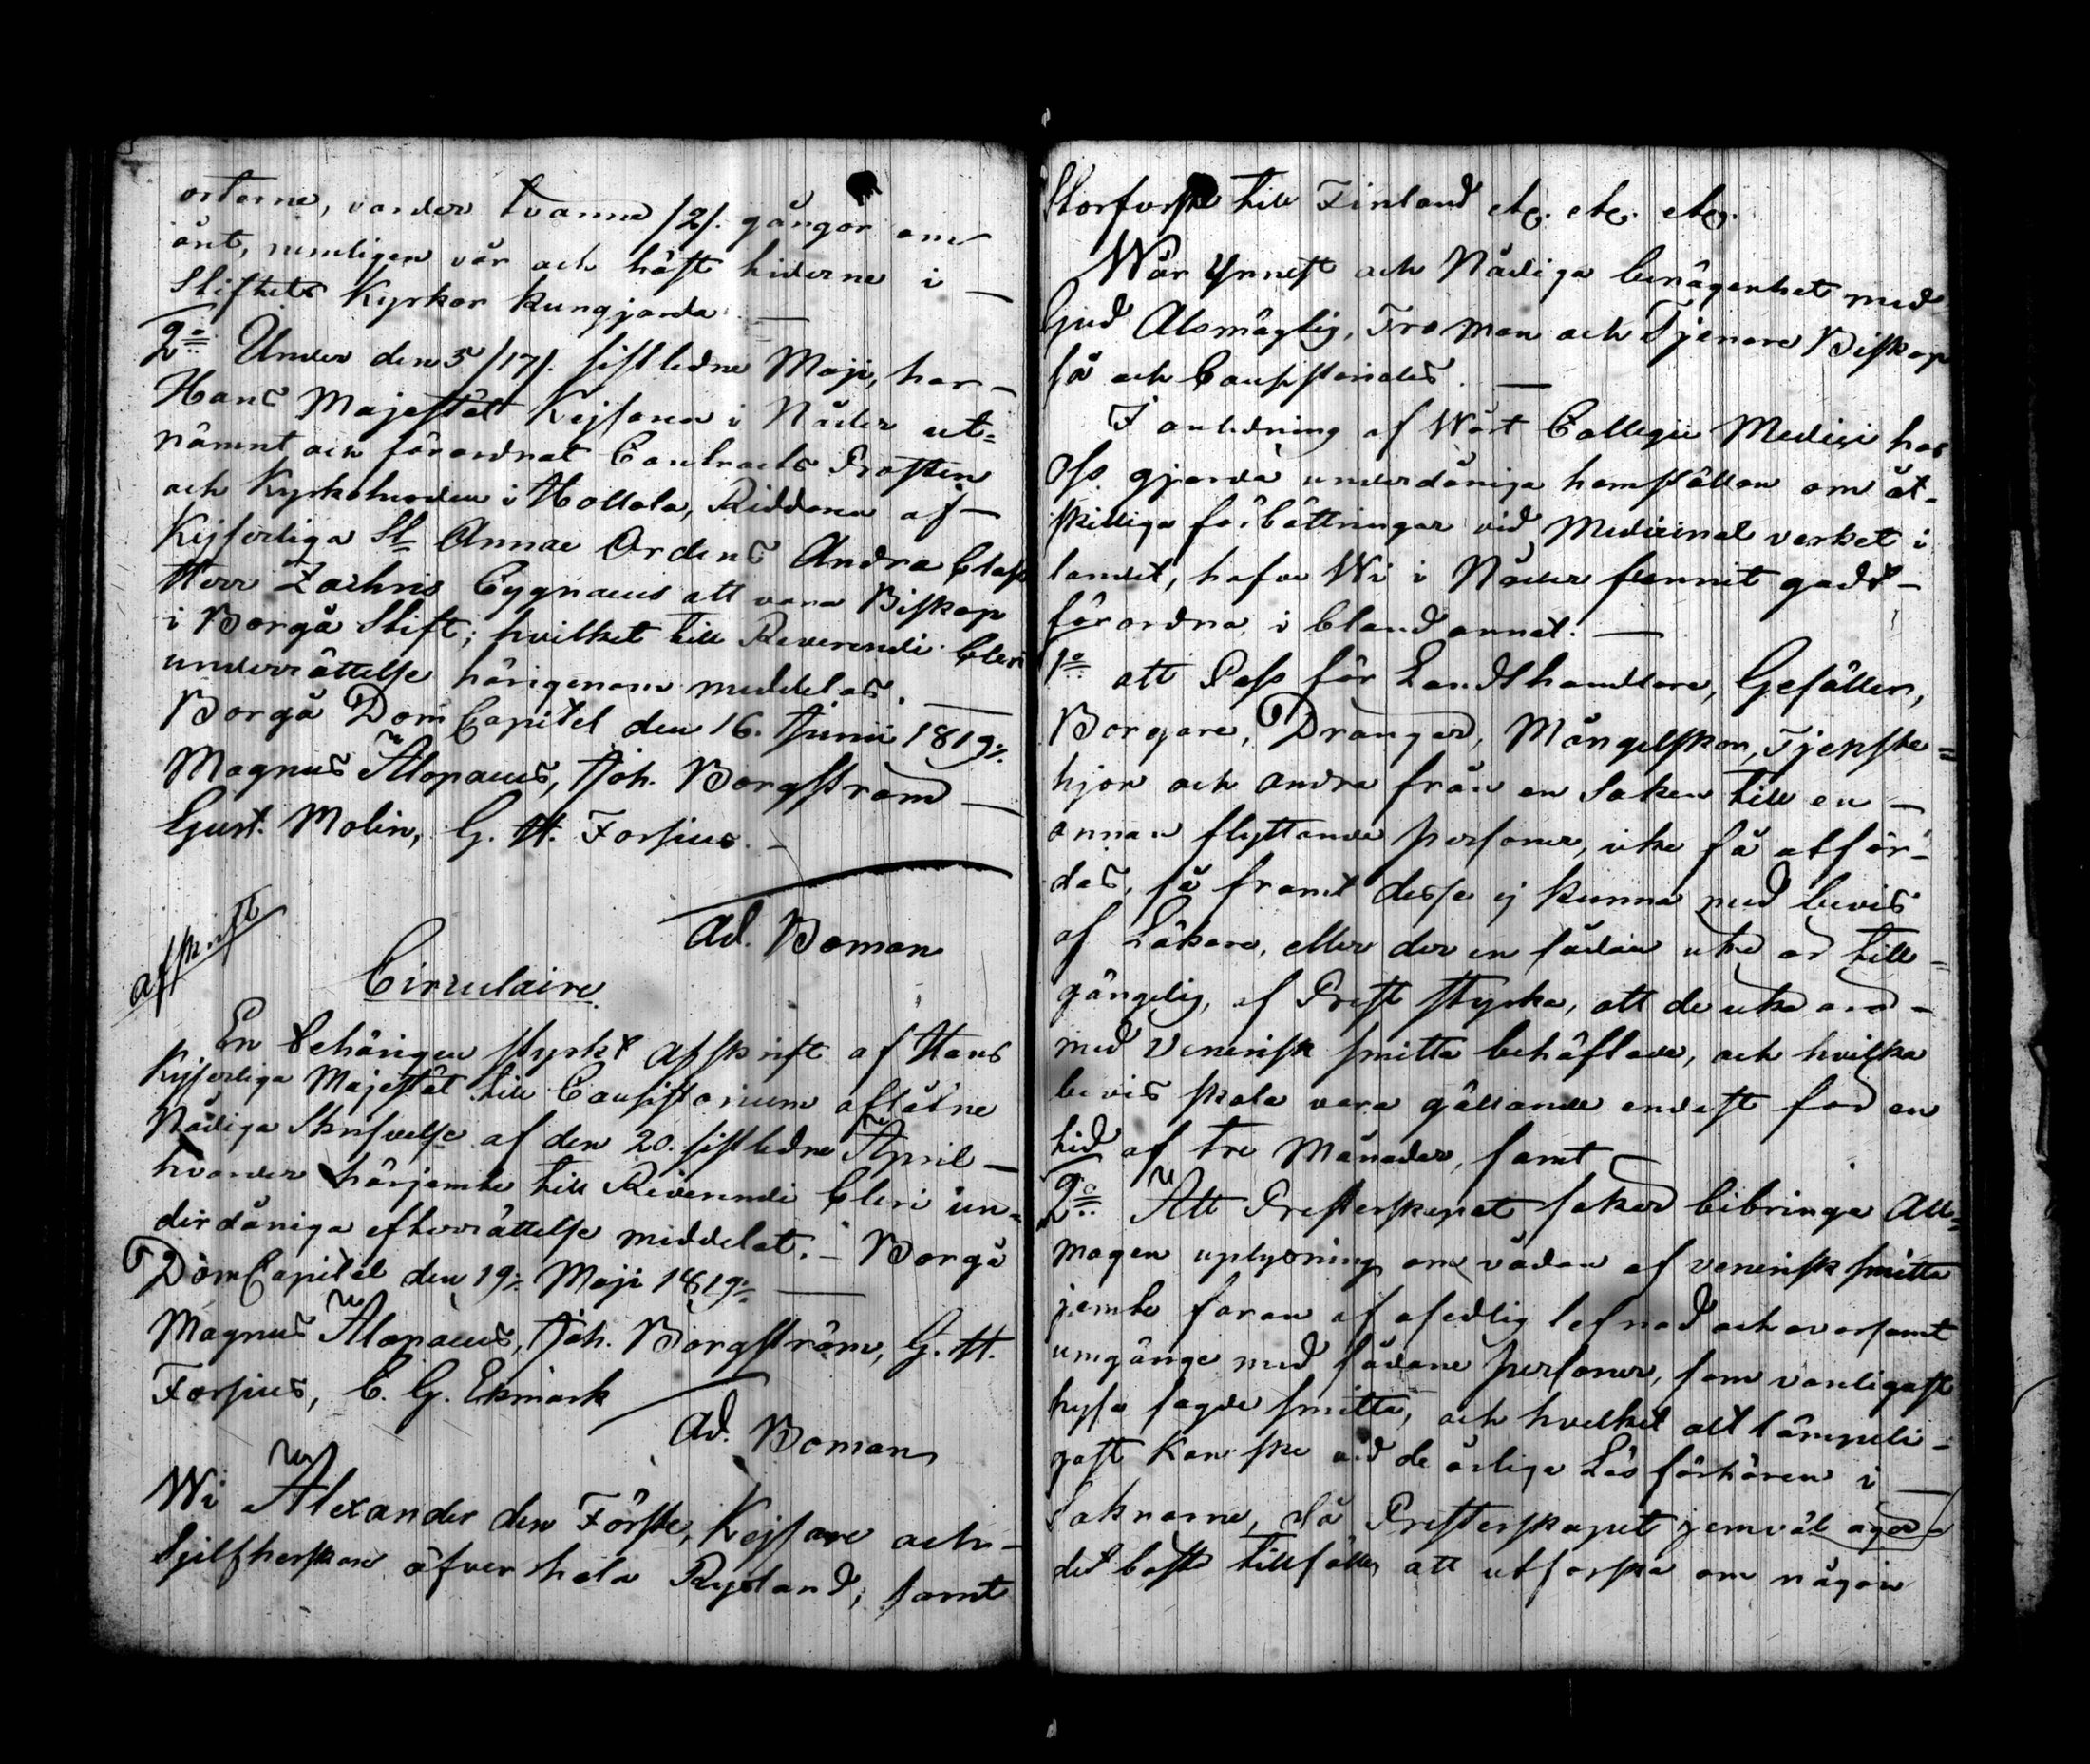 orterne, varder tvanne /2/. gångor om
årit, nemligen vår och höst tiderne i —
Stiftets Kyrkor kungjorda. —
2:o Under den 5/17/. sistledne Maji, har —
Hans Majestät Kejsaren i Nåder ut=
nämnt och förordnat Contracts Prosten
och Kyrkoherden i Hollola, Riddaren af —
Kejserliga St Annae Ordens Andra Class
Herr Zachris Cygnaeus att vara Biskop
i Borgå Stift; hvilket till Reverendi Cleri
underrättelse härigenom meddelas.
Borgå Dom Capitel den 16. Junii 1819:
Magnus Alopaeus, Joh. Borgström —
Gust. Molin, G. H. Forsius. —
Ad. Boman
Afskrift
Circulaire.
En behörigen styrkt Afskrift af Hans
Kejserliga Majestät till Consistorium aflåtne
Nådiga Skrifvelse af den 20. sistledne April —
hvarder härjemte till Reverendi Cleri un=
derdåniga efterrättelse meddelat. — Borgå
DomCapitel den 19: Maji 1819: —
Magnus Alopaeus, Joh. Borgström, G. H.
Forsius, C. G. Ekmark
Ad. Boman
Wi Alexander den Förste, Kejsare och —
Sjelfherskare öfver hela Ryssland, samt
Storfurste till Finland etc. etc. etc.
Wår ynnest och Nådiga benägenhet med
Gud Alsmägtig, Tro Man och Tjenare Biskop
så och Consistoriales. —
I anledning af Wårt Collegii Medici hos
Oss gjorda underdåniga hemställan om åt-
skilliga förbättringar vid Medicinal verket i
landet, hafve Wi i Nåder funnit godt —
förordna i bland annat. —
1:o att Pass för Landthandlare, Gesäller,
Borgare, Drängar, Mångelskor, Tjenste=
hjon och andra från en Soken till en —
annan flyttande personer, icke få utfär-
das, så framt desse ej kunna med bevis
af Läkare, eller der en sådan icke är till-
gängelig, af Prest styrka, att de icke äro —
med Venerisk smitta behäftade, och hvilka
bevis skola vara gällande endast för en
tid af tre Månader, samt —
2:o Att Presterskapet söker bibringa All=
mogen uplysning om vådan af venerisk smitta
jemte faran af osedlig lefnad och ovarsamt
umgänge med sådane personer, som vanligast
hysa sagde smitta, och hvilket allt lämpeli-
gast kan ske vid de årliga Läsförhören i —
Soknarne, då Presterskapet jemväl äger
det bästa tillfälle att utforska om någon